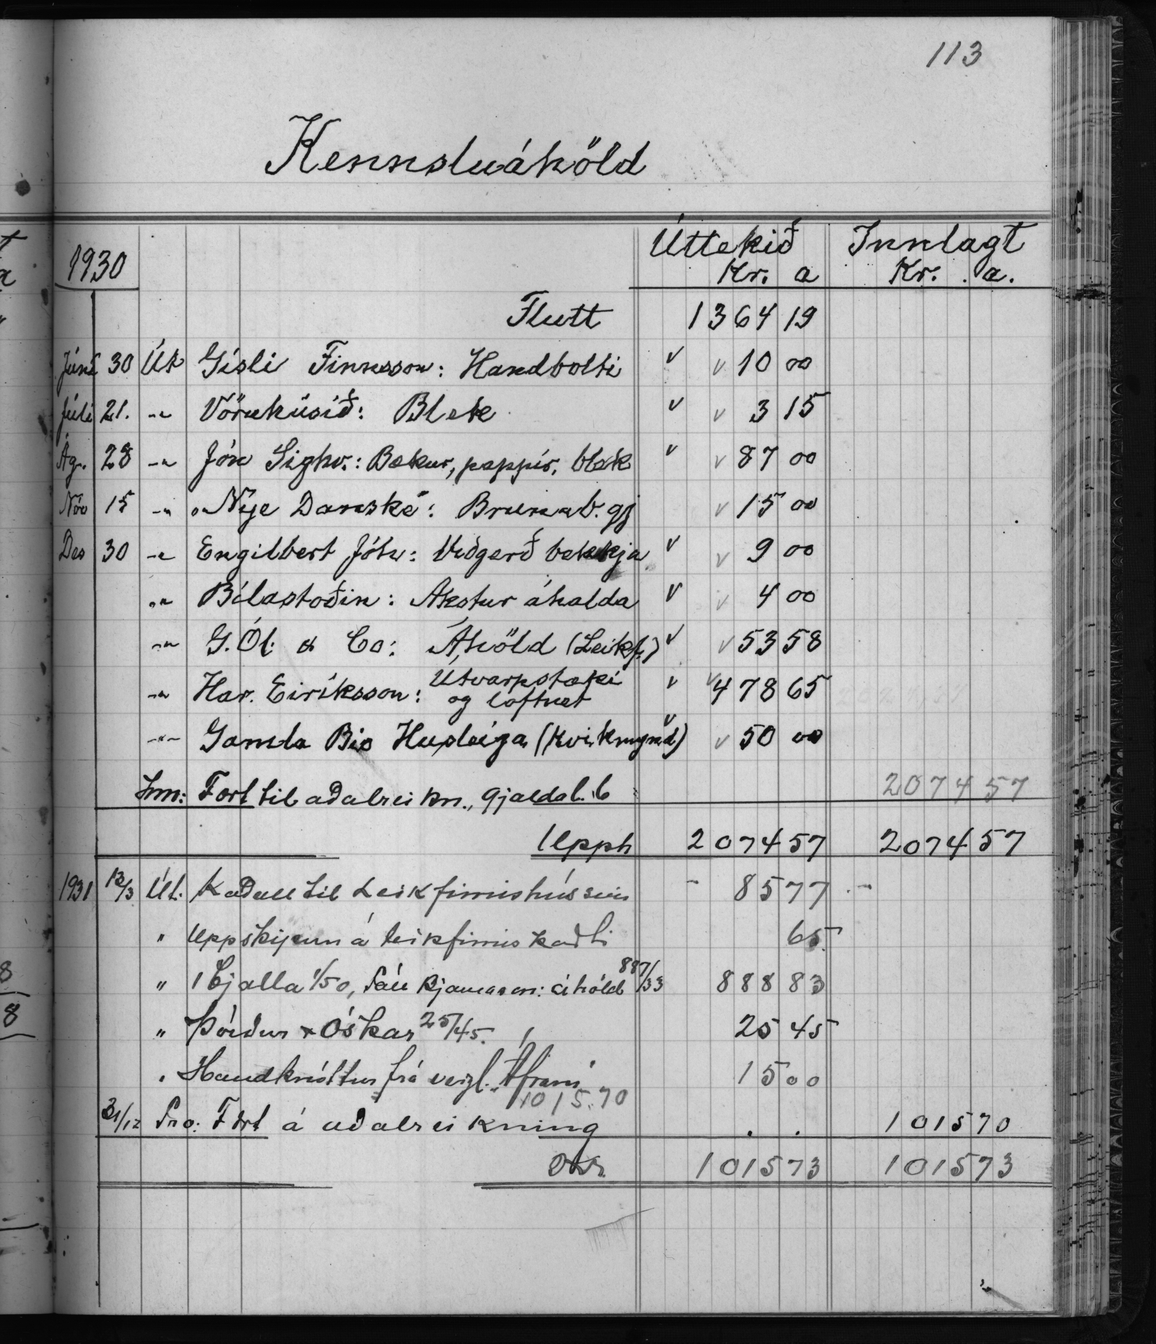 113
Kennsluáhöld
1930 Úttekið Innlagt
Kr. a Kr. a.
Flutt 1364 19
Júní 30 Út Gísli Finnsson: Handbolti v v 10 00
Júlí 21. -"- Vöruhúsið: Blek v v 3 15
Ág. 28 -"- Jón Sighv.: Bækur, pappír, blek v v 87 00
Nóv 15 -"- "Nye Danske": Brunab. gj v 15 00
Des 30 -"- Engilbert Jóh: Viðgerð bekkja v v 9 00
-"- Bílastoðin: Akstur áhalda v v 4 00
-"- G. Ól. & Co: Áhöld (Leikf.) v v 53 58
-"- Har. Eiríksson: Útvarpstæki og loftnet v v 478 65
-"- Gamla Bio Husleiga (kvikmynd) v v 50 00
Inn: Fært til aðalreikn., gjaldal. 6 2074 57
Upph 2074 57 2074 57
1931 12/3 Út. Kaðall til Leikfimishússins - 85 77 -
" á leikfimiskaðli 65
" 1 bjalla 1/50, áhöld 887/33 888 83
" Þórður & Óskar 25/45. 25 45
" Handknöttur frá verzl. Áfram 15 00
1015.70
31/12 Inn: Fært á aðalreikning . . 1015 70
1015 73 1015 73